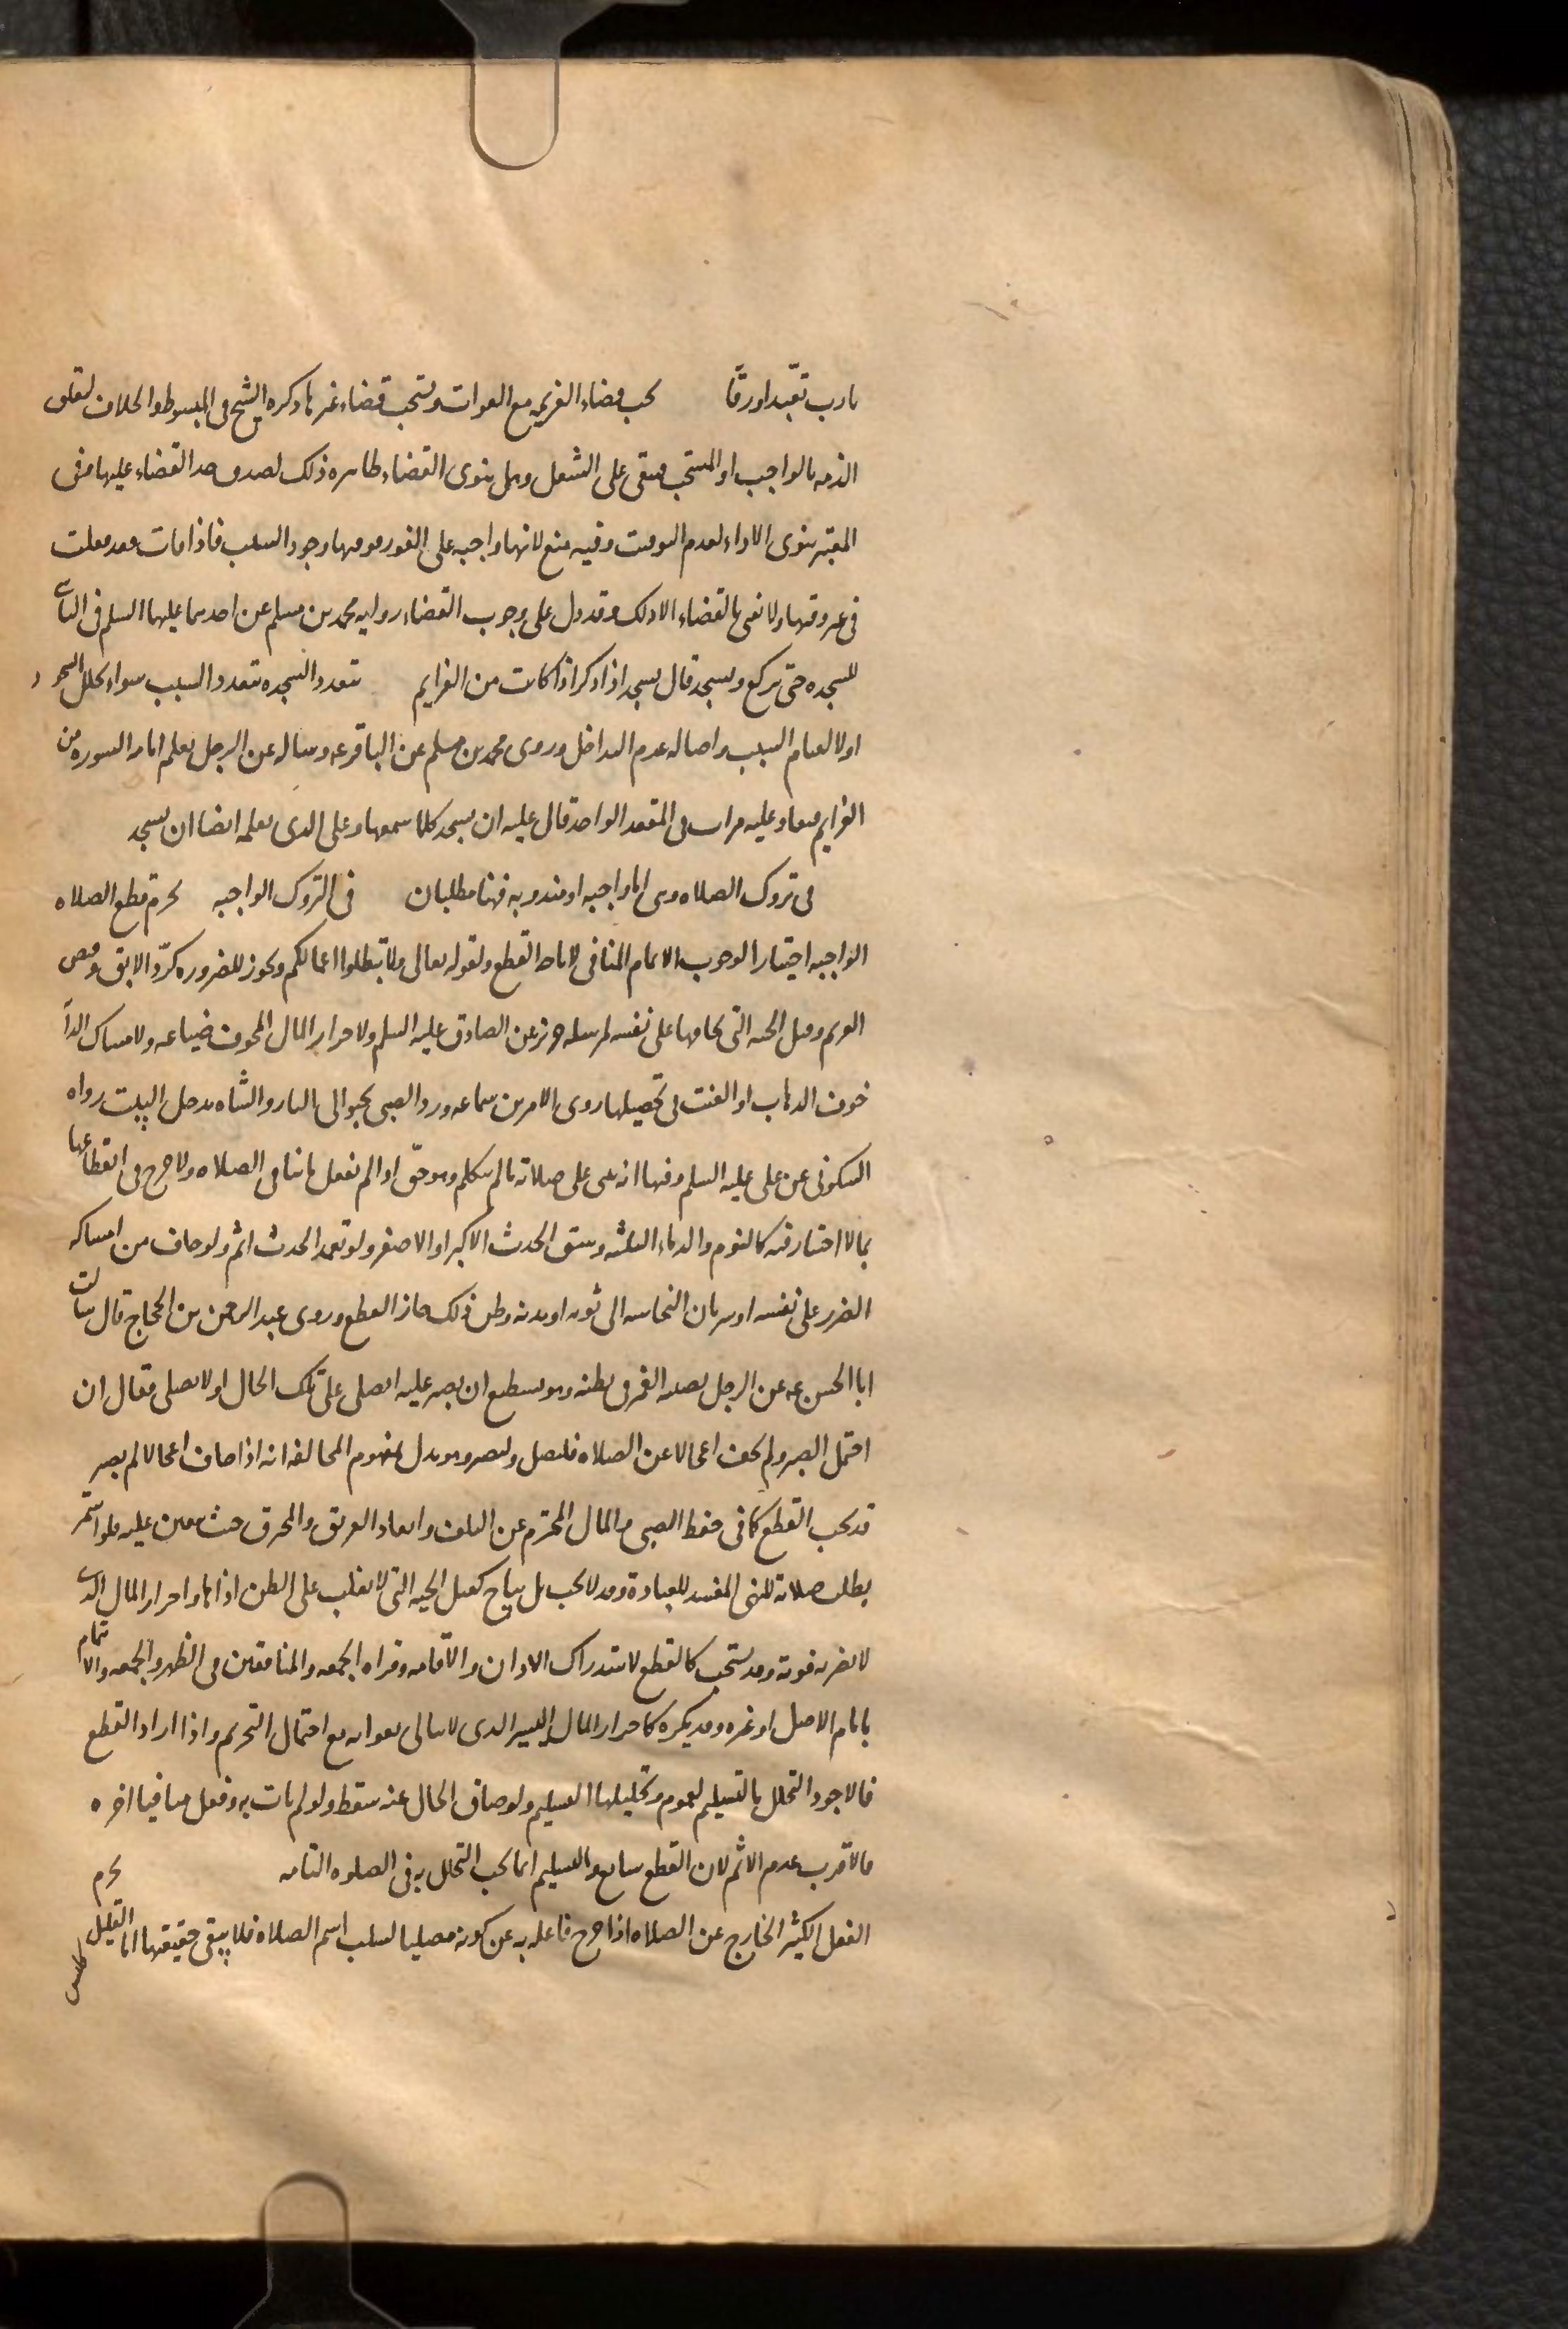 يارب تعبدا ورقا يجب قضاء العزيمه مع الفوات ويستحب قضاء غيرها ذكره الشيخ في المبسوط والخلاف لتعلق
الذمه بالواجب او المستحب فيبقى على الشغل وهل ينوى القضاء ظاهره ذلك لصدق حد القضاء عليها وفى
المعتبر ينوى الاداء لعدم التوقيت وفيه منع لانها واجبه على الفور فوقتها وجود السبب فاذا فات فقد فعلت
فى غير وقتها ولا نعنى بالقضاء الا ذلك وقد دل على وجوب القضاء روايه محمد بن مسلم عن احدهما عليهما السلم فى الناسى
للسجده حتى يركع ويسجد قال يسجد اذا ذكر اذا كانت من العزايم تتعدد السجده بتعدد السبب سواء تخلل السجود
اولا لقيام السبب واصاله عدم التداخل وروى محمد بن مسلم عن الباقر عه وساله عن الرجل يعلم السوره من
العزايم فتعاد عليه مرارا فى المقعد الواحد قال عليه ان يسجد كلما سمعها وعلى الذى يعلمه ايضا ان يسجد
فى تروك الصلاه وهى اما واجبه او مندوبه فهنا مطلبان فى التروك الواجبه يحرم قطع الصلاه
الواجبه اختيارا لوجوب الاتمام المنافى لاباحه القطع ولقوله تعالى ولا تبطلوا اعمالكم ويجوز للضروره كرد الابق وقبض
الغريم وقتل الحيه التى يخافها على نفسه لمرسله حريز عن الصادق عليه السلم ولاحراز المال المخوف ضياعه ولامساك الدابه
خوف الذهاب او العنت فى تحصيلها روى الامرين سماعه ورد الصبى يحبو الى النار والشاه تدخل البيت رواه
السكونى عن على عليه السلم وفيها انه يبنى على صلاته ما لم يتكلم وهو حق اذا لم يفعل ما ينافى الصلاه ولا حرج فى انقطاعها
بما لا اختيار فيه كالنوم والدماء الثلثه وسبق الحدث الاكبر او الاصغر ولو تعمد الحدث اثم ولو خاف من امساكه
الضرر على نفسه او سريان النجاسه الى ثوبه او بدنه وظن ذلك جاز القطع وروى عبد الرحمن بن الحجاج قال سالت
ابا الحسن عه عن الرجل يصيبه الغمز فى بطنه وهو يستطيع ان يصبر عليه ايصلى على تلك الحال او لا يصلى فقال ان
احتمل الصبر ولم يخف اعجالا عن الصلاه فليصل وليصبر وهو يدل بمفهوم المخالفه انه اذا خاف اعجالا لم يصبر
قد يجب القطع كما فى حفظ الصبى والمال المحترم عن التلف وانقاذ الغريق والمحرق حيث يتعين عليه فلو استمر
بطلت صلاته للنهى المفسد للعبادة وقد لا يجب بل يباح كقتل الحيه التى لا يغلب على الظن اذاها واحراز المال الذى
لا يضر به فوته وقد يستحب كالقطع لاستدراك الاذان والاقامه وقراه الجمعه والمنافقين فى الظهر والجمعه والائتمام
بامام الاصل او غيره وقد يكره كاحراز المال اليسير الذى لا يبالى بفواته مع احتمال التحريم واذا اراد القطع
فالاجود التحلل بالتسليم لعموم وتحليلها التسليم ولو ضاق الحال عنه سقط ولو لم يات به وفعل منافيا اخره
فالاقرب عدم الاثم لان القطع سايغ والتسليم انما يجب التحلل به فى الصلوه التامه يحرم
الفعل الكثير الخارج عن الصلاه اذا خرج فاعله به عن كونه مصليا لسلب اسم الصلاه فلا يبقى حقيقتها اما القليل
فليس